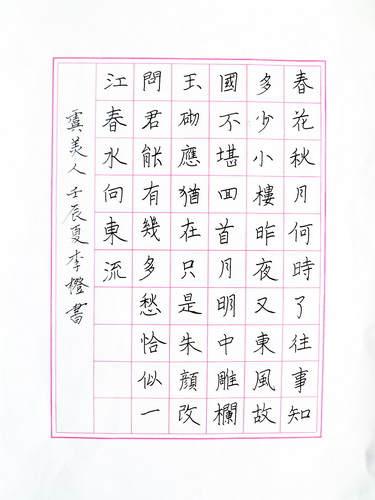 春花秋月何時了往事知
多少小樓昨夜又東風故
國不堪回首月明中雕欄
玉砌應猶在只是朱顏改
問君能有幾多愁恰似一
江春水向東流
虞美人 壬辰夏李橙書